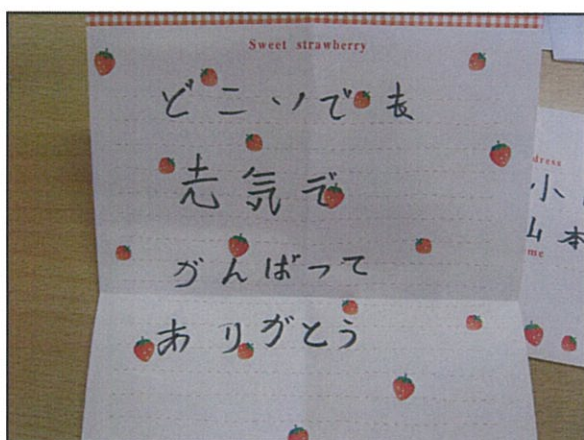 Sweet strawberry
どこいでも
元気で
がんばって
ありがとう
dress
小
山本
me